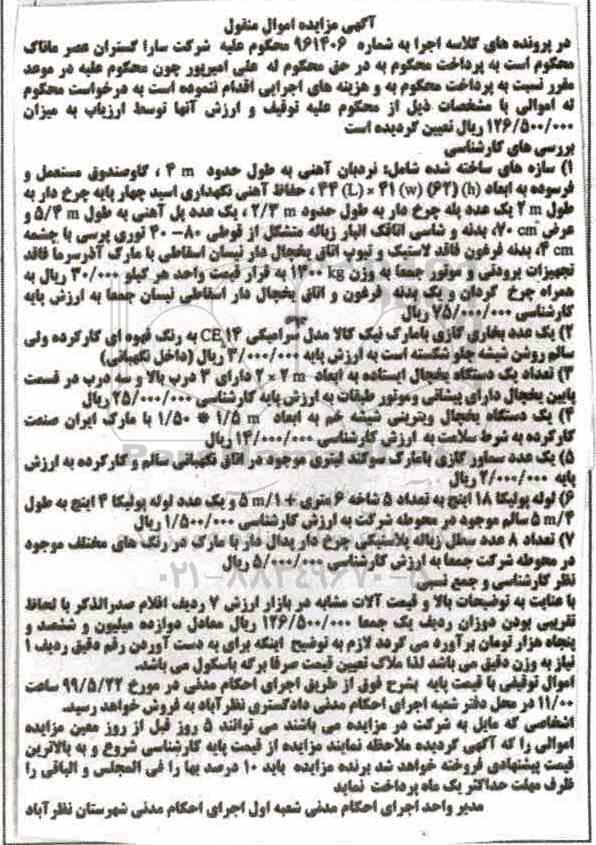 آگهی مزایده اموال منقول
در پرونده های کلاسه اجرا به شماره ۹۶۱۴۰۶ محکوم علیه شرکت سارا گستران عصر ماناک
محکوم است به پرداخت محکوم به در حق محکوم له علی امیرپور چون محکوم علیه در موعد
مقرر نسبت به پرداخت محکوم به و هزینه های اجرایی اقدام ننموده است به درخواست محکوم
له اموالی با مشخصات ذیل از محکوم علیه توقیف و ارزش آنها توسط ارزیاب به میزان
۱۲۶/۵۰۰/۰۰۰ ریال تعیین گردیده است
بررسی های کارشناسی
۱) سازه های ساخته شده شامل: نردبان آهنی به طول حدود ۴ m ، گاوصندوق مستعمل و
فرسوده به ابعاد (h) ۶۲) (w) ۴۱ × (L) ۴۴) ، حفاظ آهنی نگهداری اسید چهار پایه چرخ دار به
طول ۲ m یک عدد پله چرخ دار به طول حدود ۲/۳ m ، یک عدد پل آهنی به طول ۵/۴ m و
عرض ۷۰ cm، بدنه و شاسی اتاقک انبار زباله متشکل از قوطی ۸۰–۴۰ توری پرسی با چشمه
۴ cm، بدنه فرغون فاقد لاستیک و تیوپ اتاق یخچال دار نیسان اسقاطی با مارک آذرسرما فاقد
تجهیزات برودتی و موتور جمعا به وزن ۱۴۰۰ kg به قرار قیمت واحد هر کیلو ۳۰/۰۰۰ ریال به
همراه چرخ گردان و یک بدنه فرغون و اتاق یخچال دار اسقاطی نیسان جمعا به ارزش پایه
کارشناسی ۷۵/۰۰۰/۰۰۰ ریال
۲) یک عدد بخاری گازی بامارک نیک کالا مدل سرامیکی CE ۱۴ به رنگ قهوه ای کارکرده ولی
سالم روشن شیشه جلو شکسته است به ارزش پایه ۳/۰۰۰/۰۰۰ ریال (داخل نگهبانی)
۳) تعداد یک دستگاه یخچال ایستاده به ابعاد ۲ × ۲ m دارای ۳ درب بالا و سه درب در قسمت
پایین یخچال دارای پیشانی وموتور طبقات به ارزش پایه کارشناسی ۲۵/۰۰۰/۰۰۰ ریال
۴) یک دستگاه یخچال ویترینی شیشه خم به ابعاد ۱/۵ m * ۱/۵۰ با مارک ایران صنعت
کارکرده به شرط سلامت به ارزش کارشناسی ۱۴/۰۰۰/۰۰۰ ریال
۵) یک عدد سماور گازی بامارک سوکند لیتری موجود در اتاق نگهبانی سالم و کارکرده به ارزش
پایه ۲/۰۰۰/۰۰۰ ریال
۶) لوله پولیکا ۱۸ اینچ به تعداد ۵ شاخه ۶ متری + ۵ m/۱ و یک عدد لوله پولیکا ۴ اینچ به طول
۵ m/۴ سالم موجود در محوطه شرکت به ارزش کارشناسی ۱/۵۰۰/۰۰۰ ریال
۷) تعداد ۸ عدد سطل زباله پلاستیکی چرخ دار پدال دار با مارک در رنگ های مختلف موجود
در محوطه شرکت جمعا به ارزش کارشناسی ۵/۰۰۰/۰۰۰ ریال
نظر کارشناسی و جمع نسبی
با عنایت به توضیحات بالا و قیمت آلات مشابه در بازار ارزش ۷ ردیف اقلام صدرالذکر با لحاظ
تقریبی بودن دوزان ردیف یک جمعا ۱۲۶/۵۰۰/۰۰۰ ریال معادل دوازده میلیون و ششصد و
پنجاه هزار تومان برآورد می گردد لازم به توضیح اینکه برای به دست آوردن رقم دقیق ردیف ۱
نیاز به وزن دقیق می باشد لذا ملاک تعیین قیمت صرفا برگه باسکول می باشد.
اموال توقیفی با قیمت پایه بشرح فوق از طریق اجرای احکام مدنی در مورخ ۹۹/۵/۲۲ ساعت
۱۱/۰۰ در محل دفتر شعبه اجرای احکام مدنی دادگستری نظرآباد به فروش خواهد رسید.
اشخاصی که مایل به شرکت در مزایده می باشند می توانند ۵ روز قبل از روز معین مزایده
اموالی را که آگهی گردیده ملاحظه نمایند مزایده از قیمت پایه کارشناسی شروع و به بالاترین
قیمت پیشنهادی فروخته خواهد شد برنده مزایده باید ۱۰ درصد بها را فی المجلس و الباقی را
ظرف مهلت حداکثر یک ماه پرداخت نماید
مدیر واحد اجرای احکام مدنی شعبه اول اجرای احکام مدنی شهرستان نظرآباد